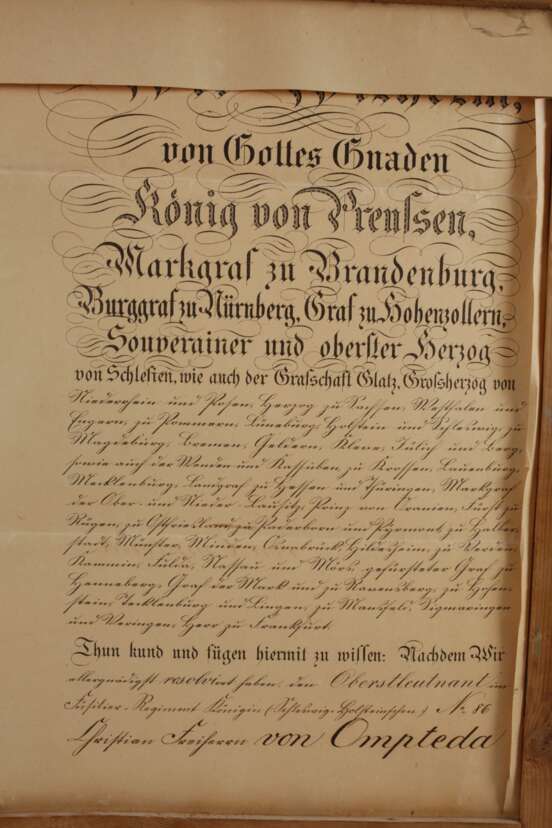 Wir Wilhelm,
von Gottes Gnaden
König von Preussen,
Markgraf zu Brandenburg,
Burggraf zu Nürnberg, Graf zu Hohenzollern,
Souverainer und oberster Herzog
von Schlesien, wie auch der Grafschaft Glatz, Grossherzog von
Niederrhein und Posen, Herzog zu Sachsen, Westphalen und
Engern, zu Pommern, Lüneburg, Holstein und Schleswig, zu
Magdeburg, Bremen, Geldern, Kleve, Jülich und Berg,
sowie auch der Wenden und Kassuben, zu Krossen, Lauenburg,
Mecklenburg, Landgraf zu Hessen und Thüringen, Markgraf
der Ober- und Nieder-Lausitz, Prinz von Oranien, Fürst zu
Rügen, zu Ostfriesland zu Paderborn und Pyrmont, zu Halber-
stadt, Münster, Minden, Osnabrück, Hildesheim, zu Verden,
Kammin, Fulda, Nassau und Mörs, gefürsteter Graf zu
Henneberg, Graf der Mark und zu Ravensberg, zu Hohen-
stein, Tecklenburg und Lingen, zu Mansfeld, Sigmaringen
und Veringen, Herr zu Frankfurt.
Thun kund und fügen hiermit zu wissen: Nachdem Wir
allergnädigst resolvirt haben, den Oberstleutnant im
Füsilier-Regiment Königin (Schleswig-Holsteinschen) No 86
Christian Freiherrn von Ompteda